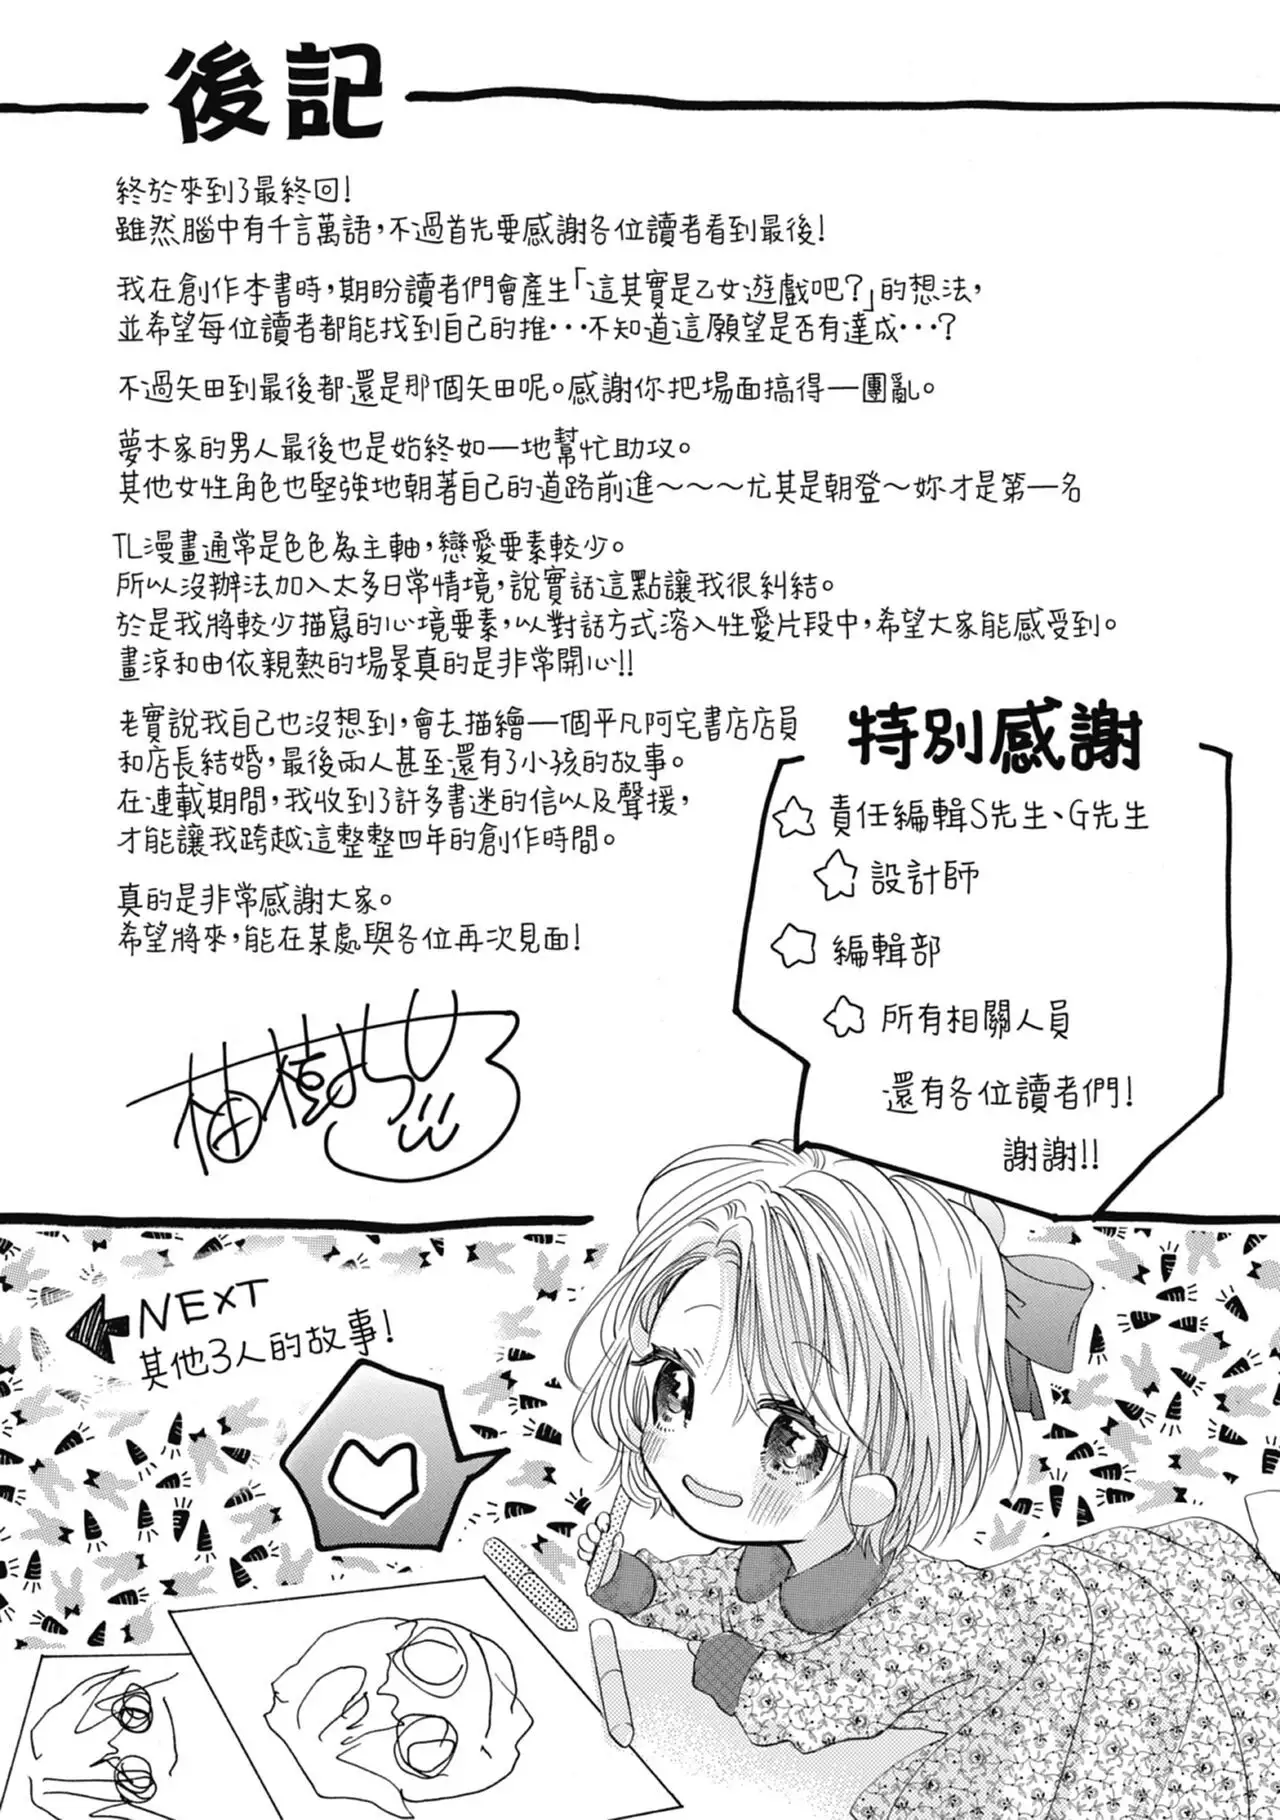 後記
終於來到了最終回!
雖然腦中有千言萬語,不過首先要感謝各位讀者看到最後!
我在創作本書時,期盼讀者們會產生「這其實是乙女遊戲吧?」的想法,
並希望每位讀者都能找到自己的推···不知道這願望是否有達成···?
不過矢田到最後都還是那個矢田呢。感謝你把場面搞得一團亂。
夢木家的男人最後也是始終如一地幫忙助攻。
其他女性角色也堅強地朝著自己的道路前進~~~尤其是朝登~妳才是第一名
TL漫畫通常是色色為主軸,戀愛要素較少。
所以沒辦法加入太多日常情境,說實話這點讓我很糾結。
於是我將較少描寫的心境要素,以對話方式溶入性愛片段中,希望大家能感受到。
畫涼和由依親熱的場景真的是非常開心!!
老實說我自己也沒想到,會去描繪一個平凡阿宅書店店員
和店長結婚,最後兩人甚至還有了小孩的故事。
在連載期間,我收到了許多書迷的信以及聲援,
才能讓我跨越這整整四年的創作時間。
真的是非常感謝大家。
希望將來,能在某處與各位再次見面!
特別感謝
☆責任編輯S先生、G先生
☆設計師
☆編輯部
☆所有相關人員
還有各位讀者們!
謝謝!!
柚樹
NEXT
其他3人的故事!